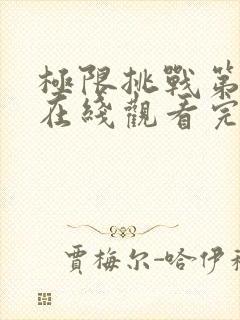 極限挑戰第
在綫觀看完
賈梅尔-哈伊